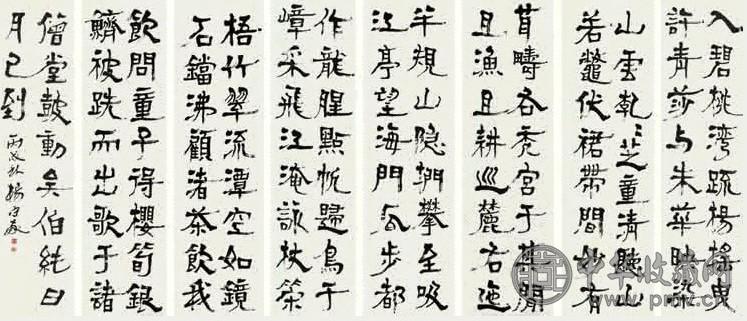 入碧桃湾疏楊搖曳
許青莎与朱華映染
山雲乾芝重清聽山
若鼈伏裙帶間妙有
疇各秃宫于其間
且漁且耕巡麓右迤
半規山隐攀至吸
江亭望海門瓦步都
作龍腥點帆歸鳥于
嶂采飛江淹詠杖策
梧竹翠流潭空如鏡
石鐺沸顧渚茶飲我
飲問童子得櫻筍銀
鱭被跣而出歌于諸
僧堂鼓動矣伯純曰
月已到
丙戌秋楊守敬
中华收藏网